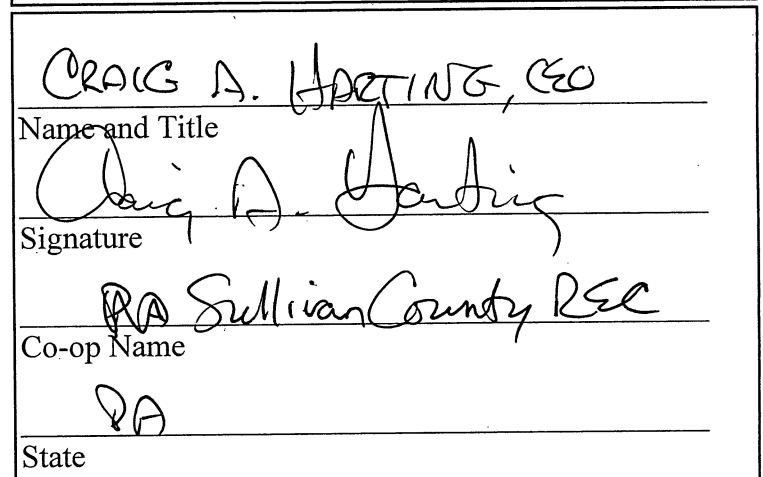 CRAIG A. HARTING, CEO
Name and Title
Craig A. Harting
Signature
PA Sullivan County REC
Co-op Name
PA
State